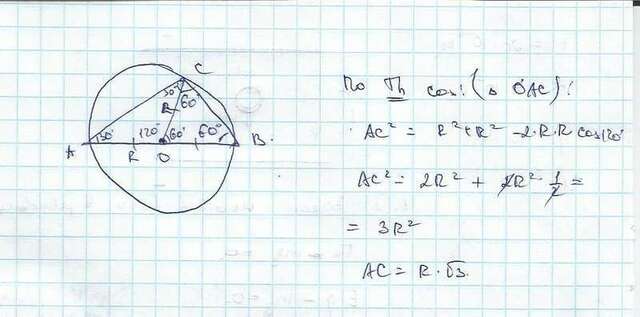 C
30° 60°
R
30° 120° 60° 60°
A R O B
По Th cos! (Δ OAC):
AC² = R² + R² - 2·R·R cos 120°
AC² = 2R² + 2R² · 1/2 =
= 3R²
AC = R · √3.